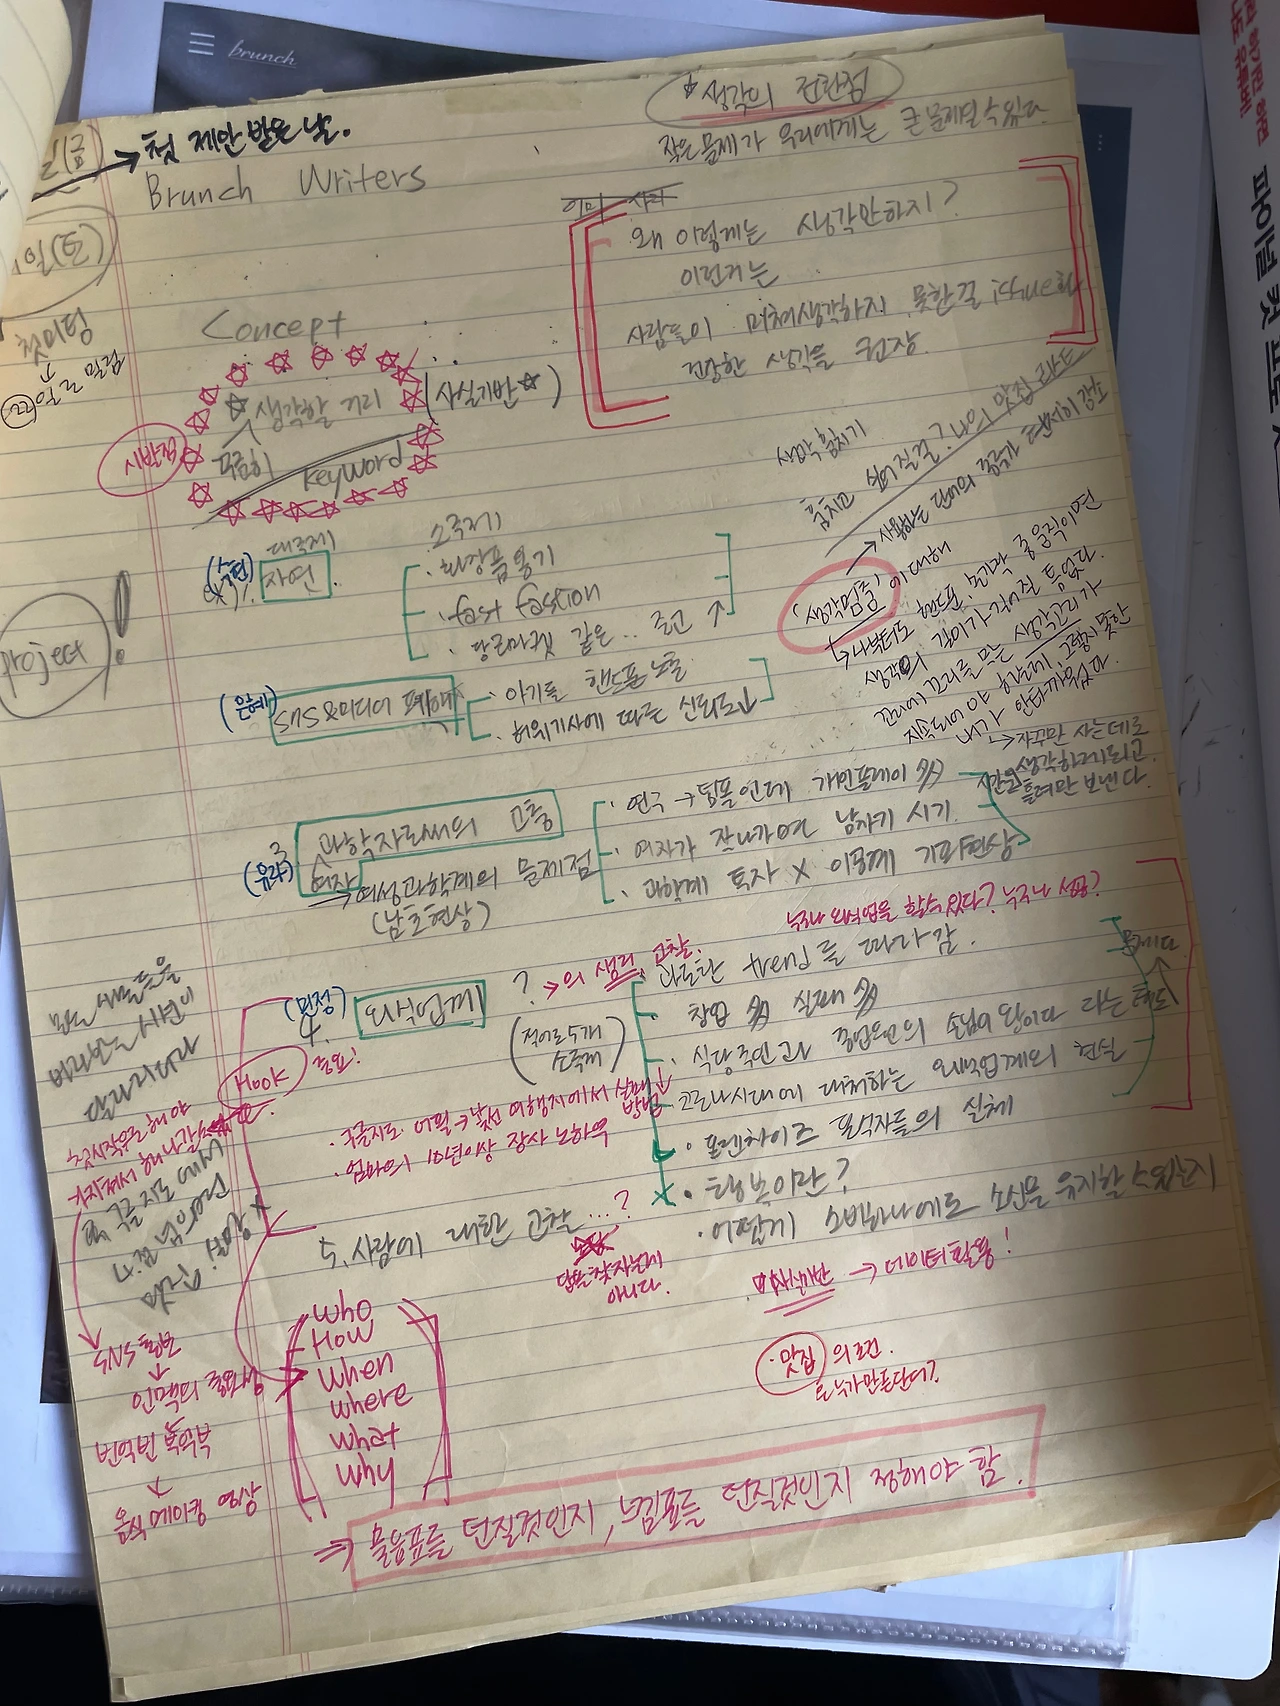 brunch
*생각의 전환점
작은 문제가 우리에게는 큰 문제일 수 있다.
(금) → 첫 제안 받은 날.
Brunch Writers
일(토)
첫미팅
22일로 밀림
왜 이렇게는 생각안하지?
이런거는
사람들이 미처 생각하지 못한 걸 issue화
건강한 생각을 권장.
Concept
☆ 생각할 거리 (사실기반☆)
시발점
무궁히 keyword
생각 훔치기
훔치고 싶어질걸? 나의 맛집 리스트
→ 사용하는 단어의 종류가 느슨히 감소
'생각멈춤'에 대해
→ 나부터도 핸드폰, 논리만 좀 움직이면
생각의 깊이가 깊어질 틈 없다.
꼬리에 꼬리를 무는 생각고리가
지속되어야 하는데, 그렇지 못한
내가 안타까웠다.
→ 자꾸만 사는대로
생각하게되고
시간을 흘려만 보낸다.
project!
대주제 소주제
자연.
· 화장품 용기
· fast fastion
· 당근마켓 같은.. 중고 ↑
(은혜) SNS&미디어 폐해
· 아기들 핸드폰 노출
· 허위기사에 따른 신뢰도↓
3 (유라) 과학자로써의 고충
여자
→ 여성과학계의 문제점
(남초현상)
· 연구 → 팀플인데 개인플레이 多
· 여자가 잘나가면 남자가 시기.
· 과학계 투자 X 이공계 기피현상
누구나 외식업을 할수있다? 누구나 성공?
(민정) 4. 외식업계 ? → 의 샘리 고찰.
(적어도 5개 소주제)
· 과도한 trend를 따라감.
· 창업 多 실패 多
· 식당주인과 종업원의 손님이 왕이다 라는 태도
문제다.
· 코로나시대에 대처하는 외식업계의 현실
· 프렌차이즈 포식자들의 실체
· 행복이란?
· 어떻게 소비하나에도 소신을 유지할 수 있는지
Hook 중요!
· 구글지도 어필 → 낯선 여행지에서 실패↓ 방법
· 엄마의 10년이상 장사 노하우
모든 사물들을
바라보는 시선이
달라지더라
첫 시작을 해야
가지쳐서 해나감
구글 지도에서
5. 사람에 대한 고찰...?
답을찾자는게
아니다.
→ 데이터 활용!
· 맛집 의 조건.
은 누가 만든단데?
SNS 홍보
↓
인맥의 중요성
번역본 부역부
↓
음식 메이킹 영상
who
How
when
where
what
why
⇒ 물음표를 던질것인지, 느낌표를 던질것인지 정해야 함.
파이널 컷 프로